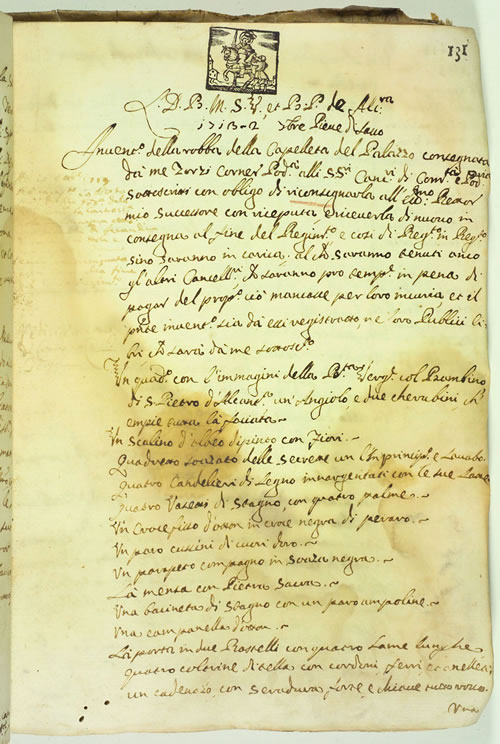 131
L. D. B. M. S. V. et B. P. de Ali.ra
1713-2 7bre Pieve di
Invent.o della robba della Capelleta del Palazzo consegnata
da me Zorzi Corner Pod.a alli SS.ri Canc.ri di Com.tà e Pod.ria
sottoscrivi con obligo di riconsegnarla all' Ecc.mo Pretor
mio successore con riceputa, e riceverla di nuovo in
consegna al fine del Regim.to e così di Reg.to in Reg.to
sino saranno in carica, al saranno tenuti anco
gl'altri Cancell.ri saranno pro temp.e in pena di
pagar del prop.o ciò mancasse per loro incuria, et il
p̃nte invent.o sia da essi registratto, ne loro Publici Li-
bri sarà da me sottosc.to
Un quad.o con l'immagini della B.ta Verg.e col Bambino
di S. Pietro d'Alcant.a un Angiolo, e due cherubini, ch'
empie tutta la facciata.
Un Scalino d'albeo dipinto con Fiori.
Quadretto soazato delle secrete un l'In principi.o e Lavabo.
Quattro Candelieri di Legno innargentati con le sue
Quattro Vasetti di stagno, con quatro palme.
Un Crocefisso d'otton in croce negra di peraro.
Un paro cussini di cuori d'oro.
Un parapeto compagno in soaza negra.
La mensa con Pietra Sacra.
Una bacineta di stagno con un paro ampoline.
Una campanella d'otton.
La porta in due Rastelli con quatro Lame lunghe
quatro coltrine di tella con cordoni, ferri et anelletti
un cadenazo, con seradura, forte, e chiave
Una